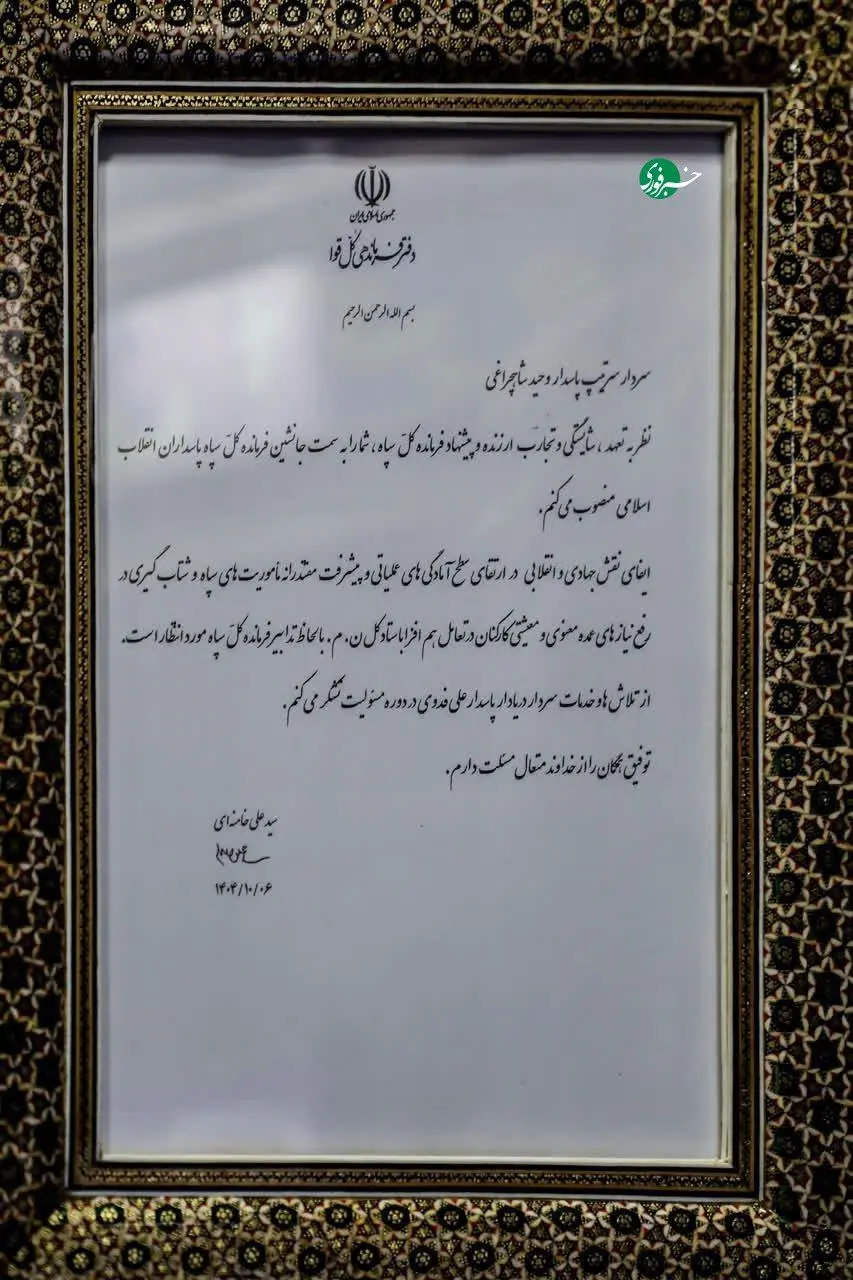 خبرفوری
جمهوری اسلامی ایران
دفتر فرماندهی کل قوا
بسم الله الرحمن الرحیم
سردار سرتیپ پاسدار وحید شاهچراغی
نظر به تعهد ، شایستگی و تجارب ارزنده و پیشنهاد فرمانده کلّ سپاه ، شما را به سمت جانشین فرمانده کلّ سپاه پاسداران انقلاب
اسلامی منصوب می کنم.
ایفای نقش جهادی و انقلابی در ارتقای سطح آمادگی های عملیاتی و پیشرفت مقتدرانه مأموریت های سپاه و شتاب گیری در
رفع نیازهای عمده معنوی و معیشتی کارکنان در تعامل هم افزا با ستاد کل ن. م. با لحاظ تدابیر فرمانده کلّ سپاه مورد انتظار است.
از تلاش ها و خدمات سردار دریادار پاسدار علی فدوی در دوره مسئولیت تشکر می کنم.
توفیق همگان را از خداوند متعال مسئلت دارم.
سید علی خامنه ای
۱۴۰۴/۱۰/۰۶